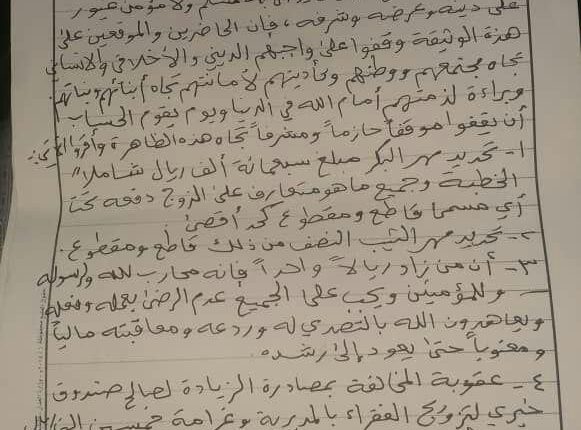 على دينه وعرضه وشرفه، فإن الحاضرين والموقعين على
هذة الوثيقة وقفوا على واجبهم الديني والأخلاقي والإنساني
تجاه مجتمعهم ووطنهم وتأديتهم لأمانتهم تجاه أبنائهم وبناتهم
وبراءة لذمتهم أمام الله في الدنيا ويوم يقوم الحساب
أن يقفوا موقفاً حازماً ومشرفاً تجاه هذه الظاهرة وأقروا الآتي:
١- تحديد مهر البكر مبلغ سبعمائة ألف ريال شاملاً
الخطبة وجميع ما هو متعارف على الزوج دفعه تحت
أي مسما قاطع ومقطوع كحد أقصى
٢- تحديد مهر الثيب النصف من ذلك قاطع ومقطوع.
٣- أن من زاد ريالاً واحداً فإنه محارب لله ولرسوله
وللمؤمنين ويجب على الجميع عدم الرضى بعمله وفعله
ويعاهدون الله بالتصدي له وردعه ومعاقبته مالياً
ومعنوياً حتى يعود إلى رشده.
٤- عقوبة المخالفة بمصادرة الزيادة لصالح صندوق
خيري لتزويج الفقراء بالمديرية وغرامة خمسين